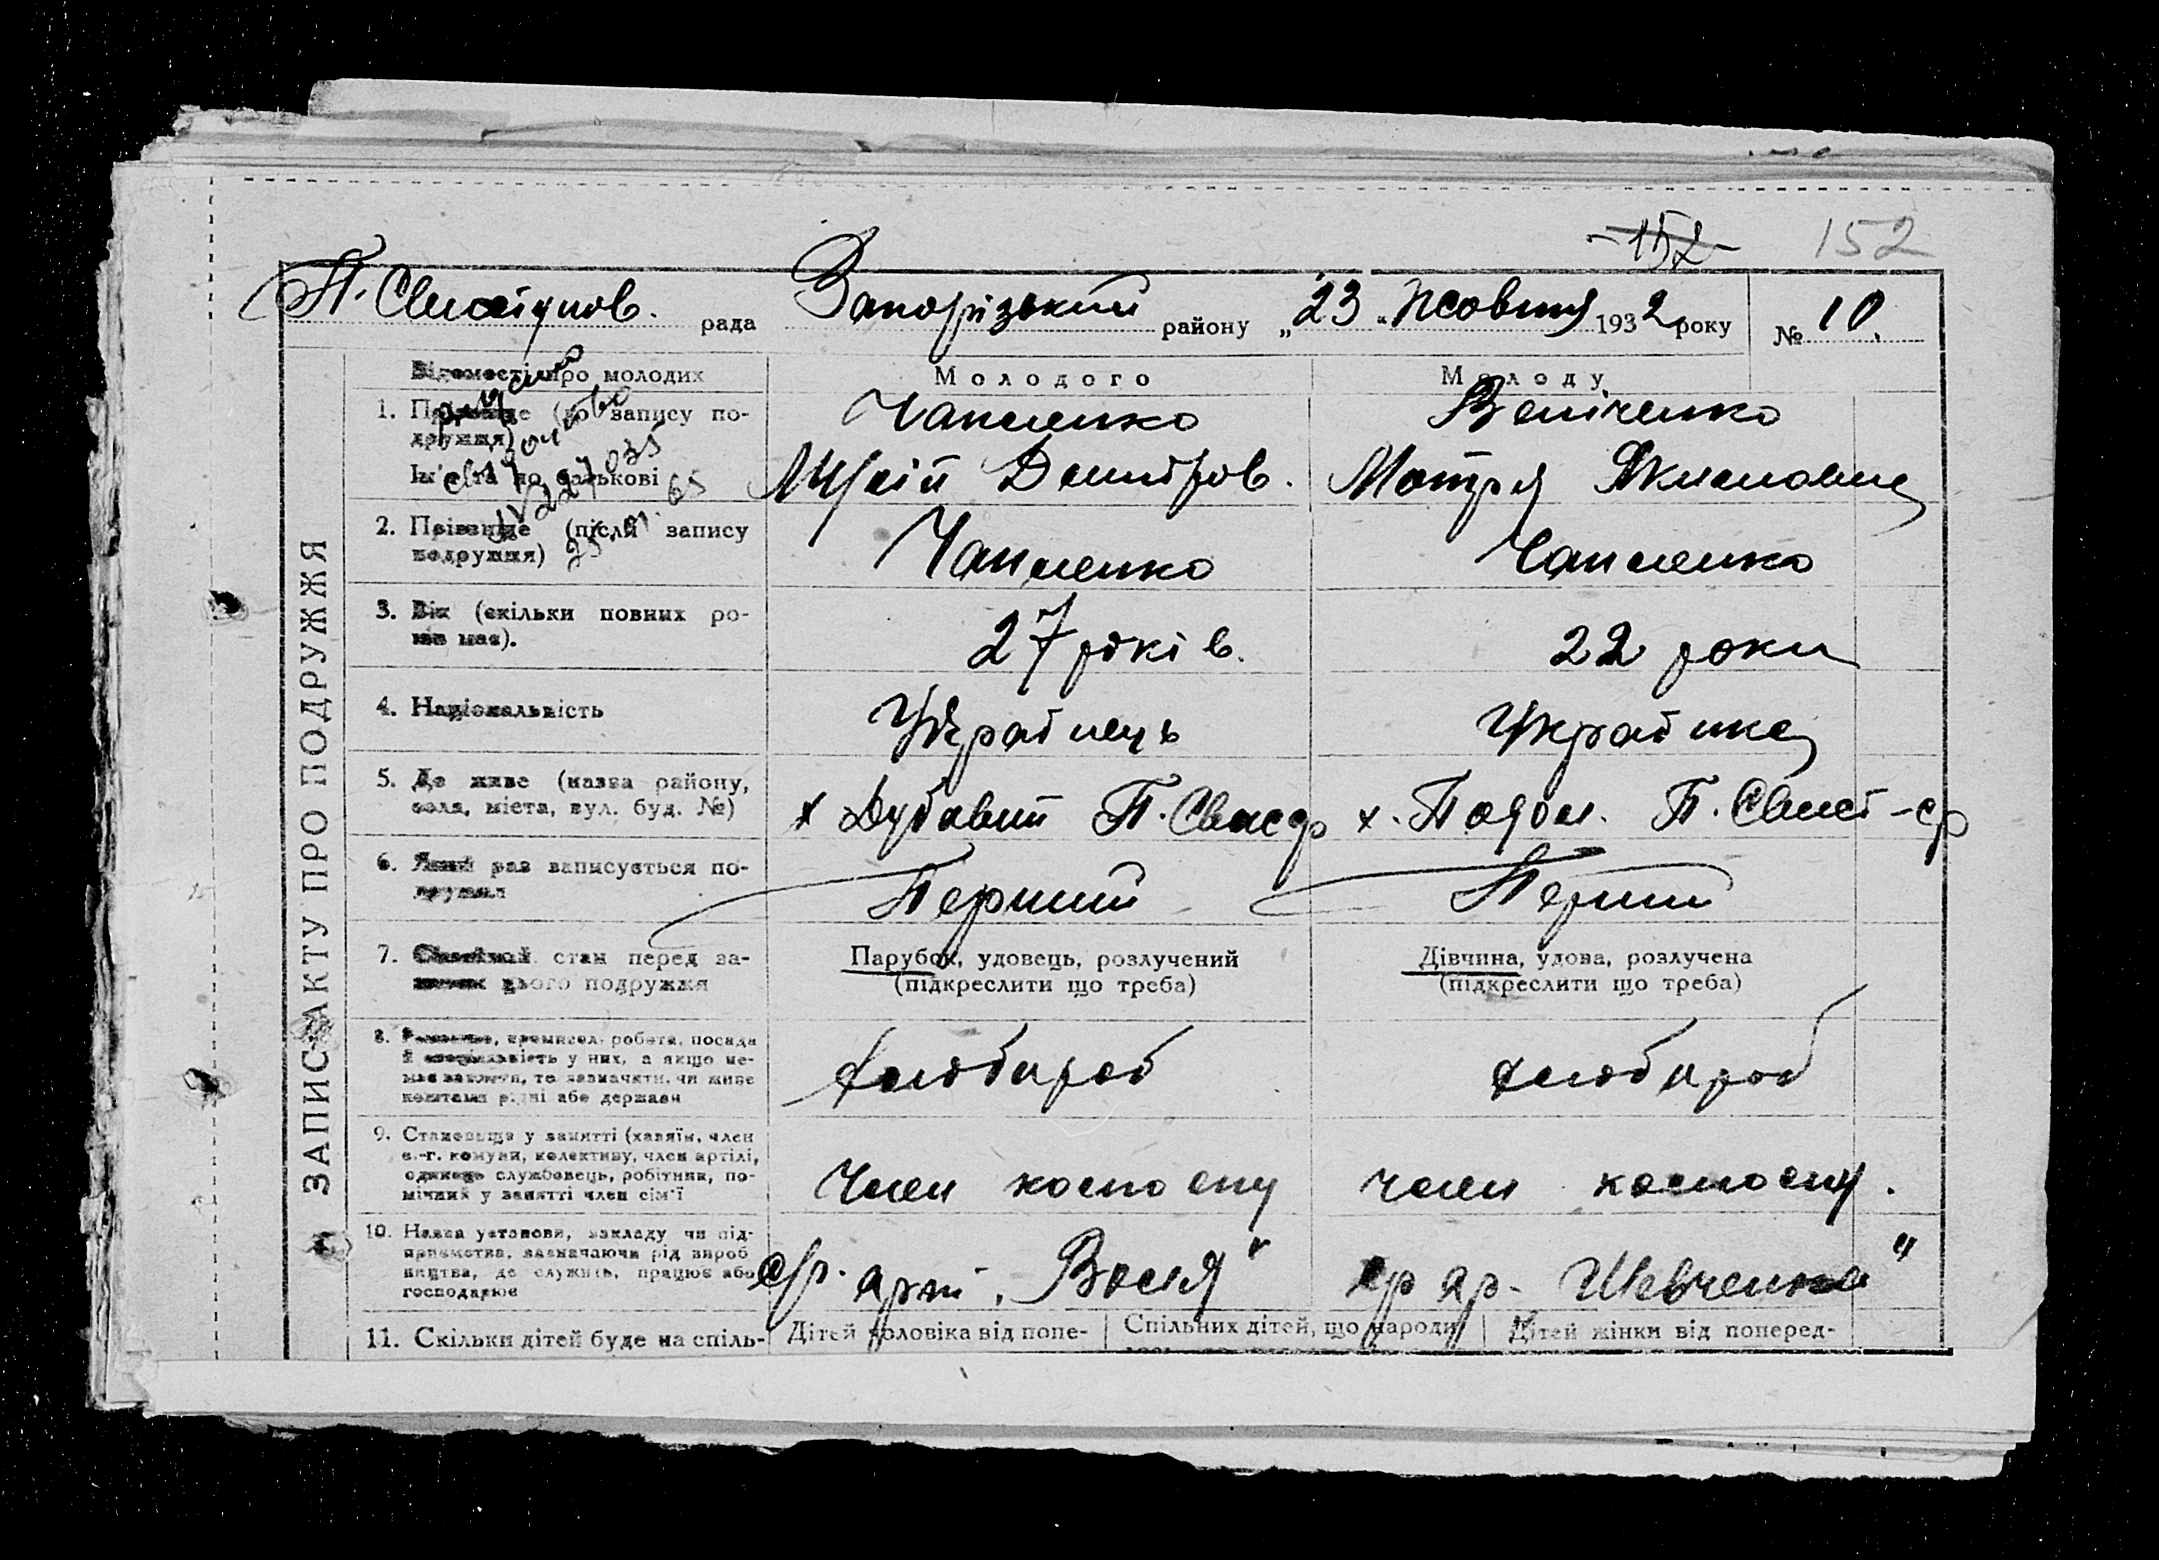 152 152
П. Свистунов. рада Запорізький району „23" Жовтня 1932 року № 10.
ЗАПИС АКТУ ПРО ПОДРУЖЖЯ
Відомості про молодих Молодого Молоду
1. Прізвище (до запису по- Чапленко
дружжя)
Ім'я та по батькові Дмитров. Мотря
2. Прізвище (після запису
подружжя) Чапленко Чапленко
25.01.65
3. Вік (скільки повних ро-
ків має). 27 років. 22 роки
4. Національність Українець Українка
5. Де живе (назва району,
села, міста, вул. буд. №) х Дубовий П. Свис ср х. Подол. П. Свист-ср
6. Який раз записується по-
дружжя Перший Перший
7. Сімейний стан перед за- Парубок, удовець, розлучений Дівчина, удова, розлучена
писом цього подружжя (підкреслити що треба) (підкреслити що треба)
8. Ремество, промисел, робота, посада
й спеціяльність у них, а якщо не-
має заняття, то зазначити, чи живе
коштами рідні або держави хлібороб хлібороб
9. Становище у занятті (хазяїн, член
с.-г. комуни, колективу, член артілі,
одинець службовець, робітник, по-
мічний у занятті член сім'ї Член колгоспу член колгоспу.
10. Назва установи, закладу чи під-
приємства, зазначаючи рід вироб
ництва, де служить, працює або
господарює арт. „Воля" ар. Шевченка"
11. Скільки дітей буде на спіль- Дітей чоловіка від попе- Спільних дітей, що народи Дітей жінки від поперед-